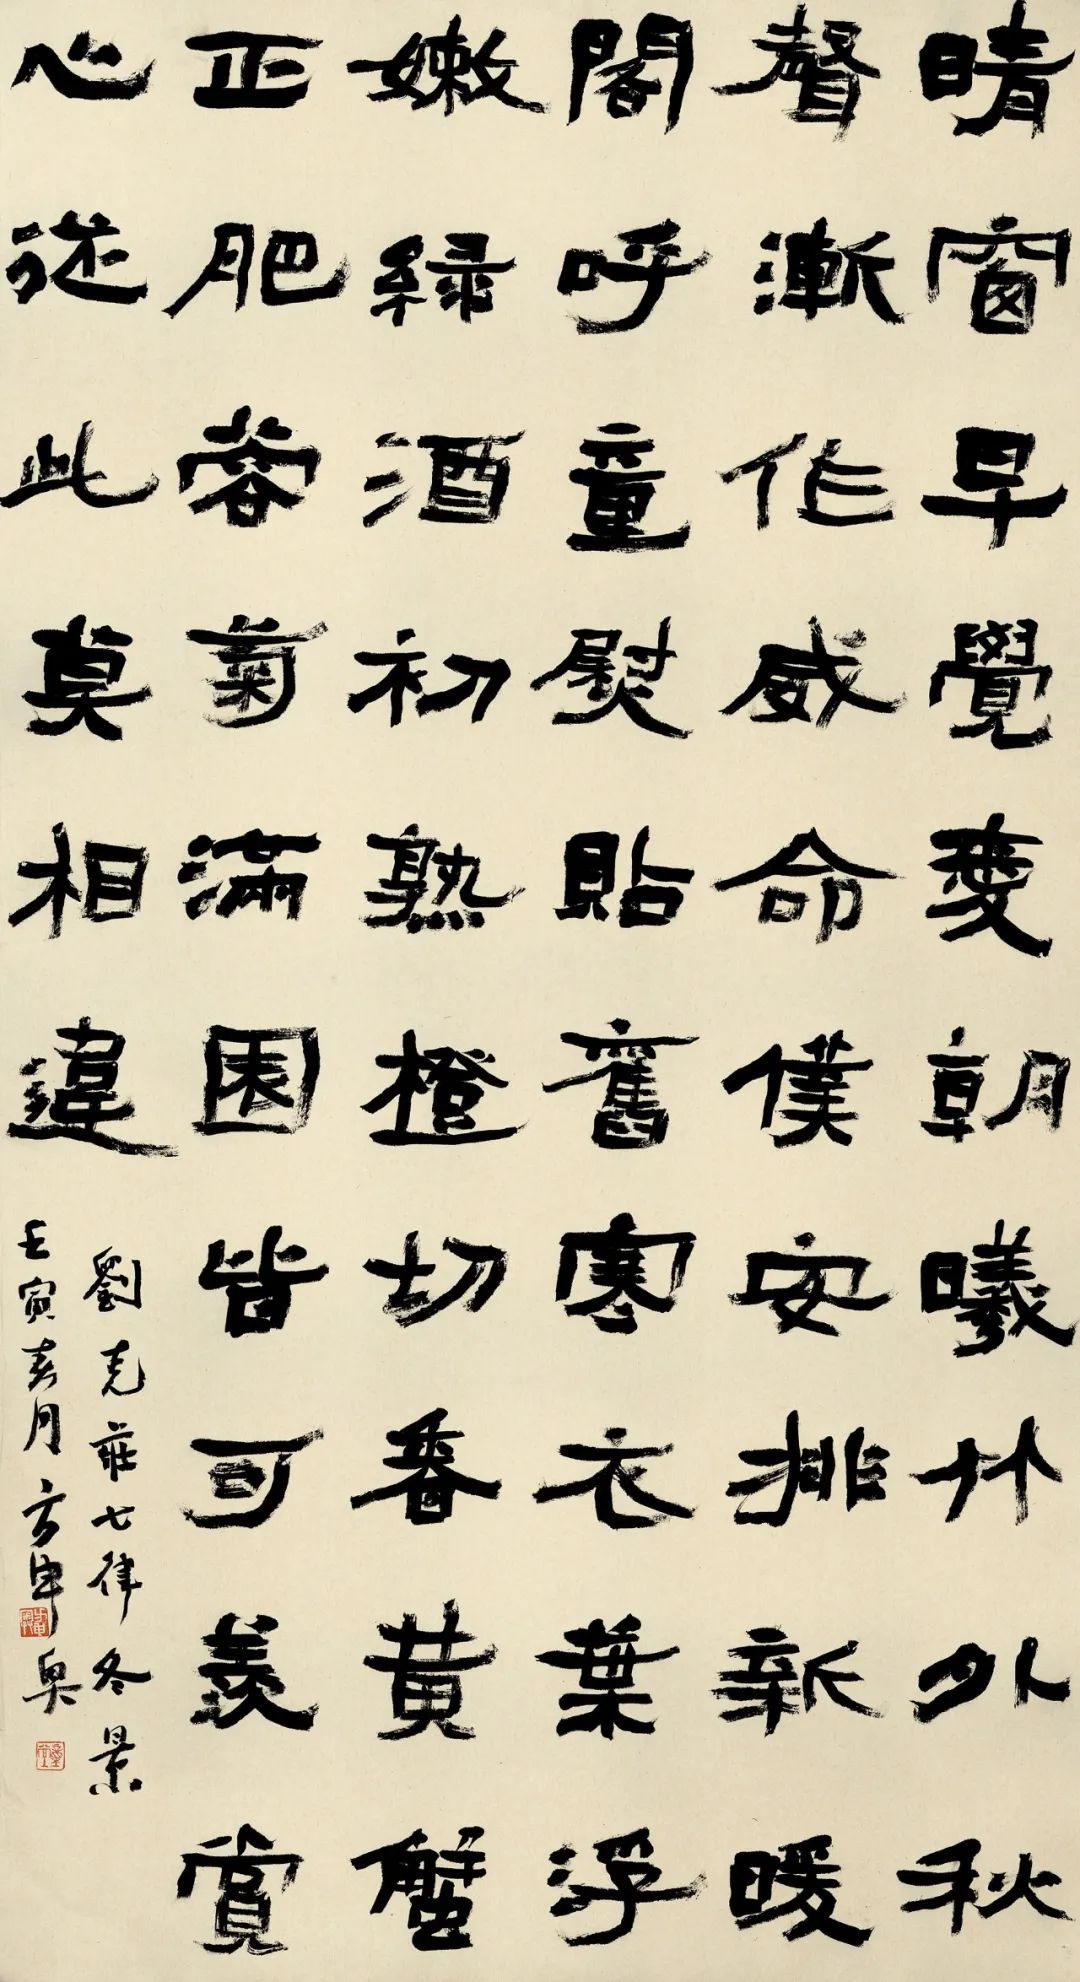 晴窗早覺愛朝曦竹外秋
聲漸作威命僕安排新暖
閣呼童熨貼舊寒衣葉浮
嫩綠酒初熟橙切香黃蟹
正肥蓉菊滿園皆可羨賞
心從此莫相違
劉克莊七律冬景
壬寅春月方